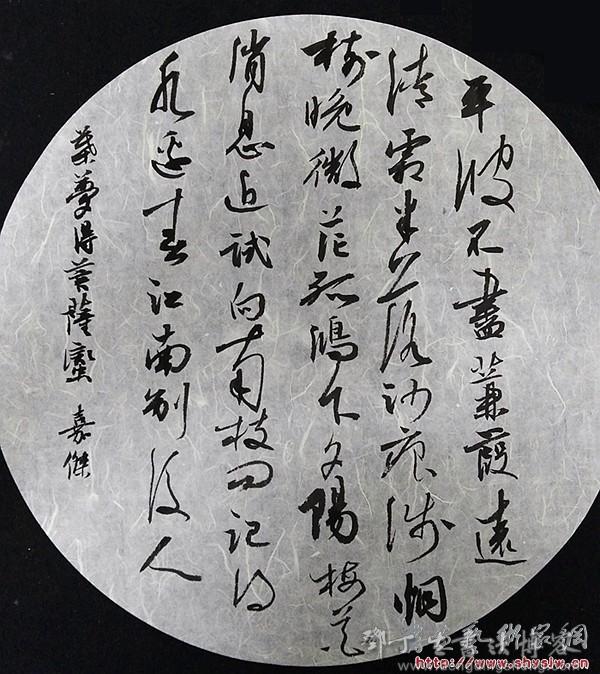 平波不盡蒹葭遠
清霜半落沙痕浅烟
树晚微茫孤鴻下夕陽梅花
消息近试向南枝问记得
水边春江南别后人
葉夢得菩薩蠻 嘉傑
http://www.shyslw.cn